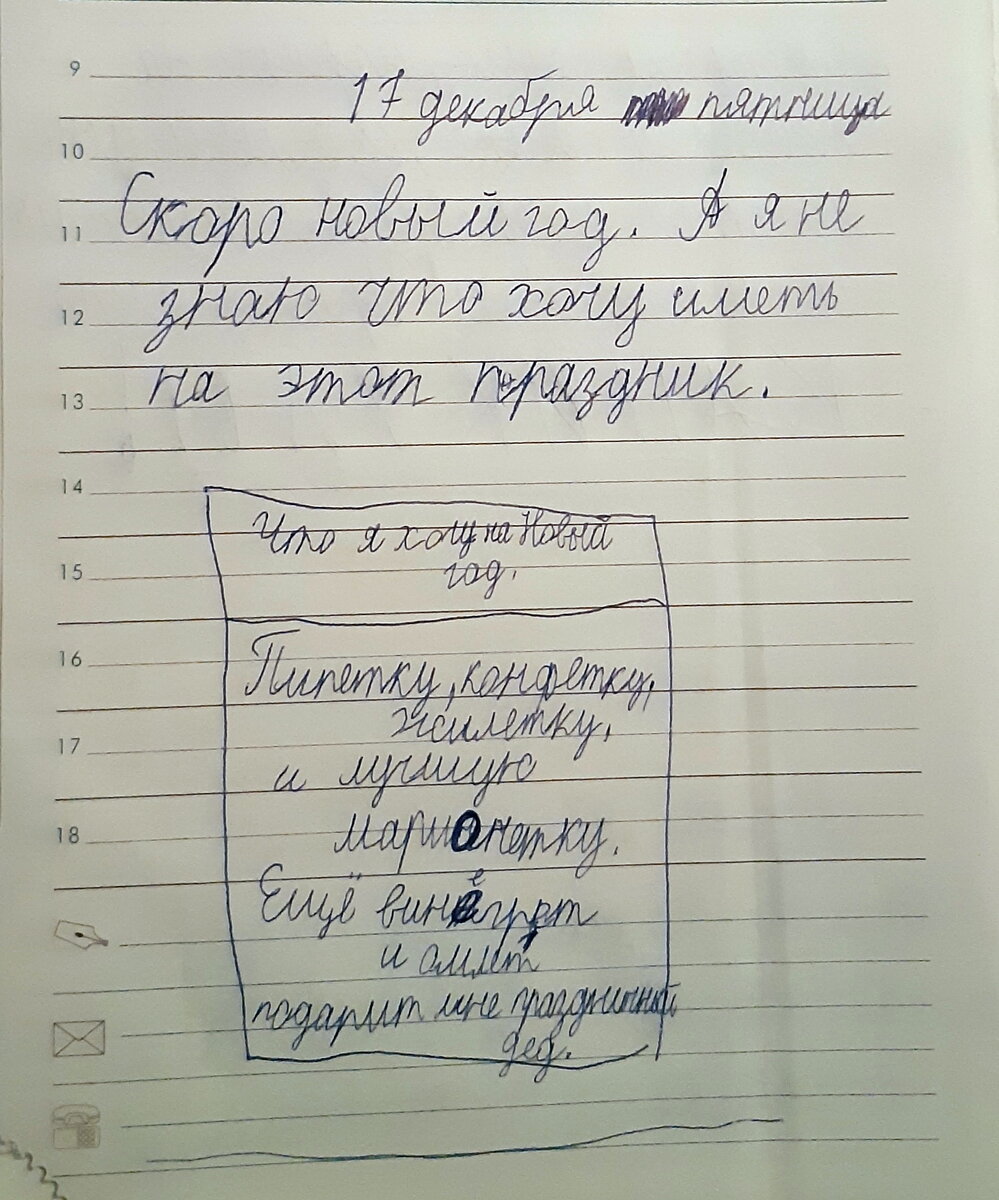 9
17 декабря пятница
10
Скоро новый год. А я не
11
знаю что хочу иметь
12
на этот праздник.
13
14
Что я хочу на Новый
год.
15
16
Пипетку, конфетку,
жилетку,
17
и лучшую
18
марионетку.
Ещё винегрет
и омлет
подарит мне праздничный
дед.